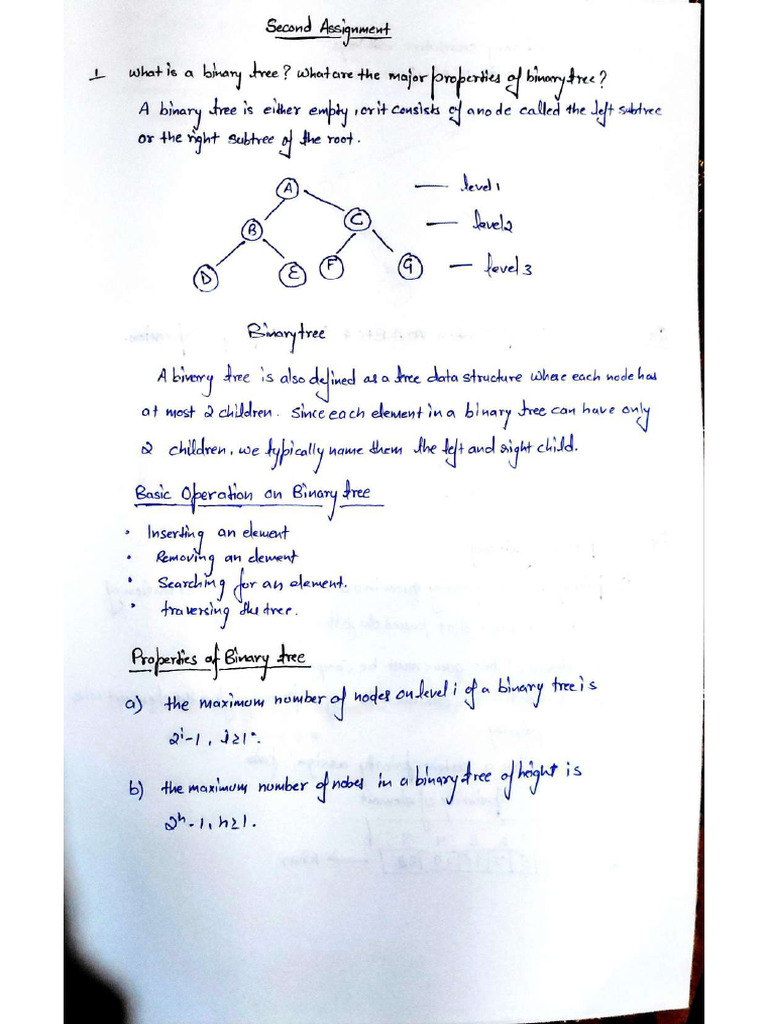 Second Assignment
1 What is a binary tree? What are the major properties of binary tree?
A binary tree is either empty, or it consists of a node called the left subtree
or the right subtree of the root.
A level 1
B C level 2
D E F G level 3
Binary tree
A binery tree is also defined as a tree data structure where each node has
at most 2 children. Since each element in a binary tree can have only
2 children, we typically name them the left and right child.
Basic Operation on Binary tree
• Inserting an element
• Removing an element
• Searching for an element.
• traversing the tree.
Properties of Binary tree
a) the maximum number of nodes on level i of a binary tree is
2^i-1, i≥1.
b) the maximum number of nobes in a binary tree of height is
2^h-1, h≥1.